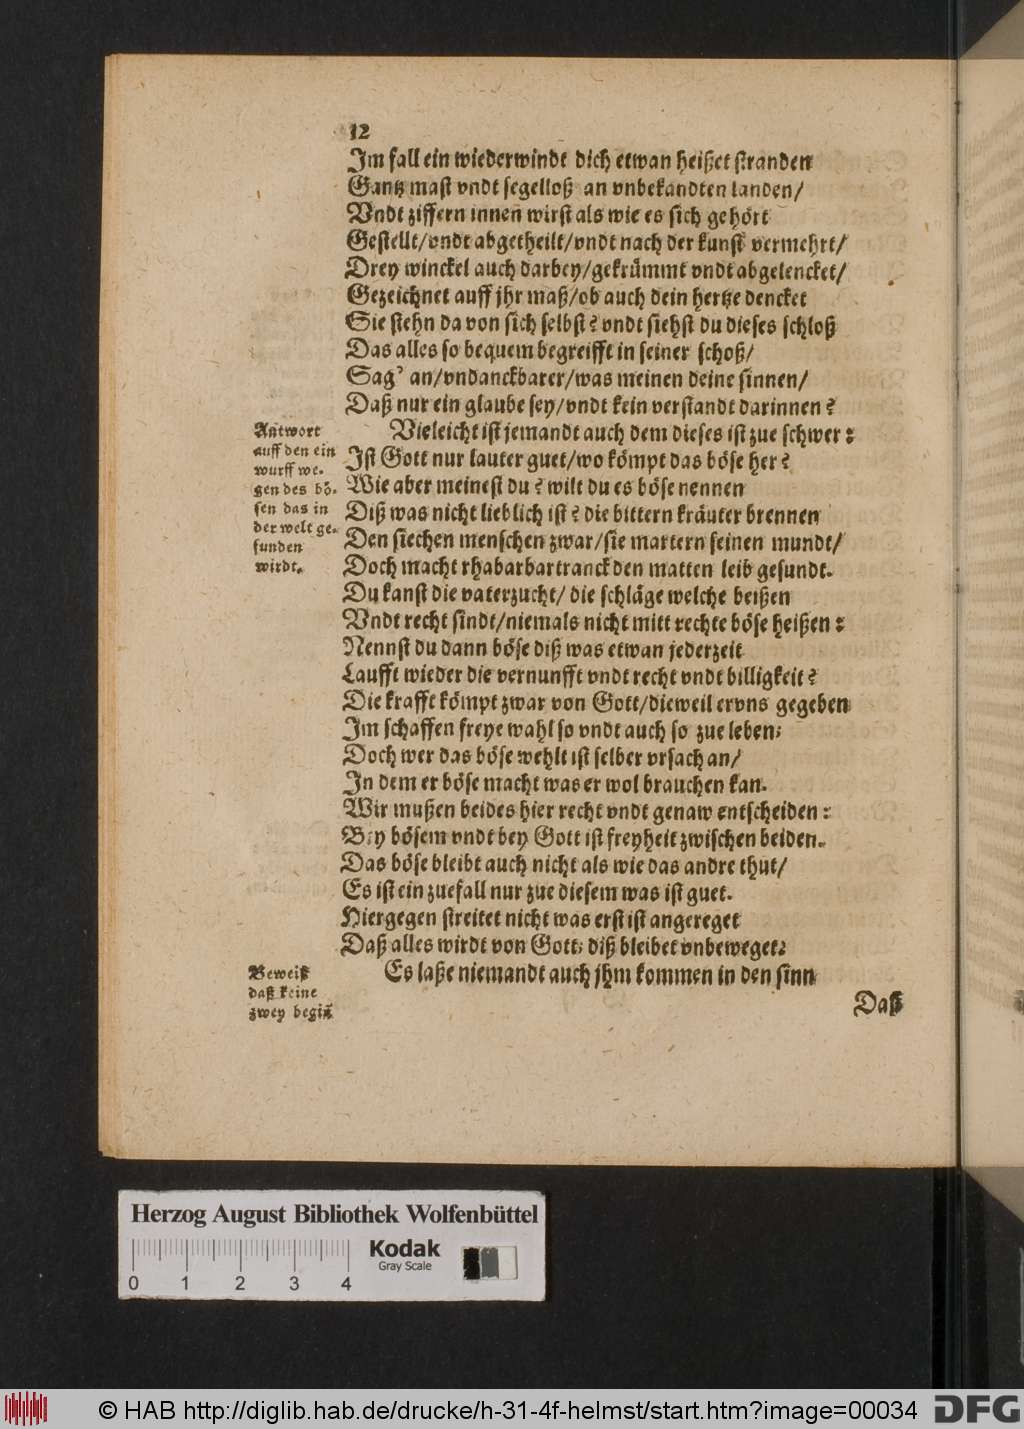 12
Im fall ein wiederwindt dich etwan heißet stranden
Gantz mast vndt segelloß an vnbekandten landen/
Vndt ziffern innen wirst als wie es sich gehört
Gestellt/vndt abgetheilt/vndt nach der kunst vermehrt/
Drey winckel auch darbey/gekrümmt vndt abgelencket/
Gezeichnet auff jhr maß/ob auch dein hertze dencket
Sie stehn da von sich selbst? vndt siehst du dieses schloß
Das alles so bequem begreifft in seiner schoß/
Sag' an/vndanckbarer/was meinen deine sinnen/
Daß nur ein glaube sey/vndt kein verstandt darinnen?
Antwort
auff den ein
wurff we-
gen des bö-
sen das in
der welt ge-
funden
wirdt.
Vieleicht ist jemandt auch dem dieses ist zue schwer:
Ist Gott nur lauter guet/wo kömpt das böse her?
Wie aber meinest du? wilt du es böse nennen
Diß was nicht lieblich ist? die bittern kräuter brennen
Den siechen menschen zwar/sie martern seinen mundt/
Doch macht rhabarbartranck den matten leib gesundt.
Du kanst die vaterzucht/ die schläge welche beißen
Vndt recht sindt/niemals nicht mitt rechte böse heißen:
Nennst du dann böse diß was etwan jederzeit
Laufft wieder die vernunfft vndt recht vndt billigkeit?
Die krafft kömpt zwar von Gott/dieweil er vns gegeben
Im schaffen freye wahl so vndt auch so zue leben;
Doch wer das böse wehlt ist selber vrsach an/
In dem er böse macht was er wol brauchen kan.
Wir mußen beides hier recht vndt genaw entscheiden:
Bey bösem vndt bey Gott ist freyheit zwischen beiden.
Das böse bleibt auch nicht als wie das andre thut/
Es ist ein zuefall nur zue diesem was ist guet.
Hiergegen streitet nicht was erst ist angereget
Daß alles wirdt von Gott; diß bleibet vnbeweget:
Beweiß
daß keine
zwey begiñ
Es laße niemandt auch jhm kommen in den sinn
Daß
Herzog August Bibliothek Wolfenbüttel
0 1 2 3 4
Kodak
Gray Scale
© HAB http://diglib.hab.de/drucke/h-31-4f-helmst/start.htm?image=00034
DFG